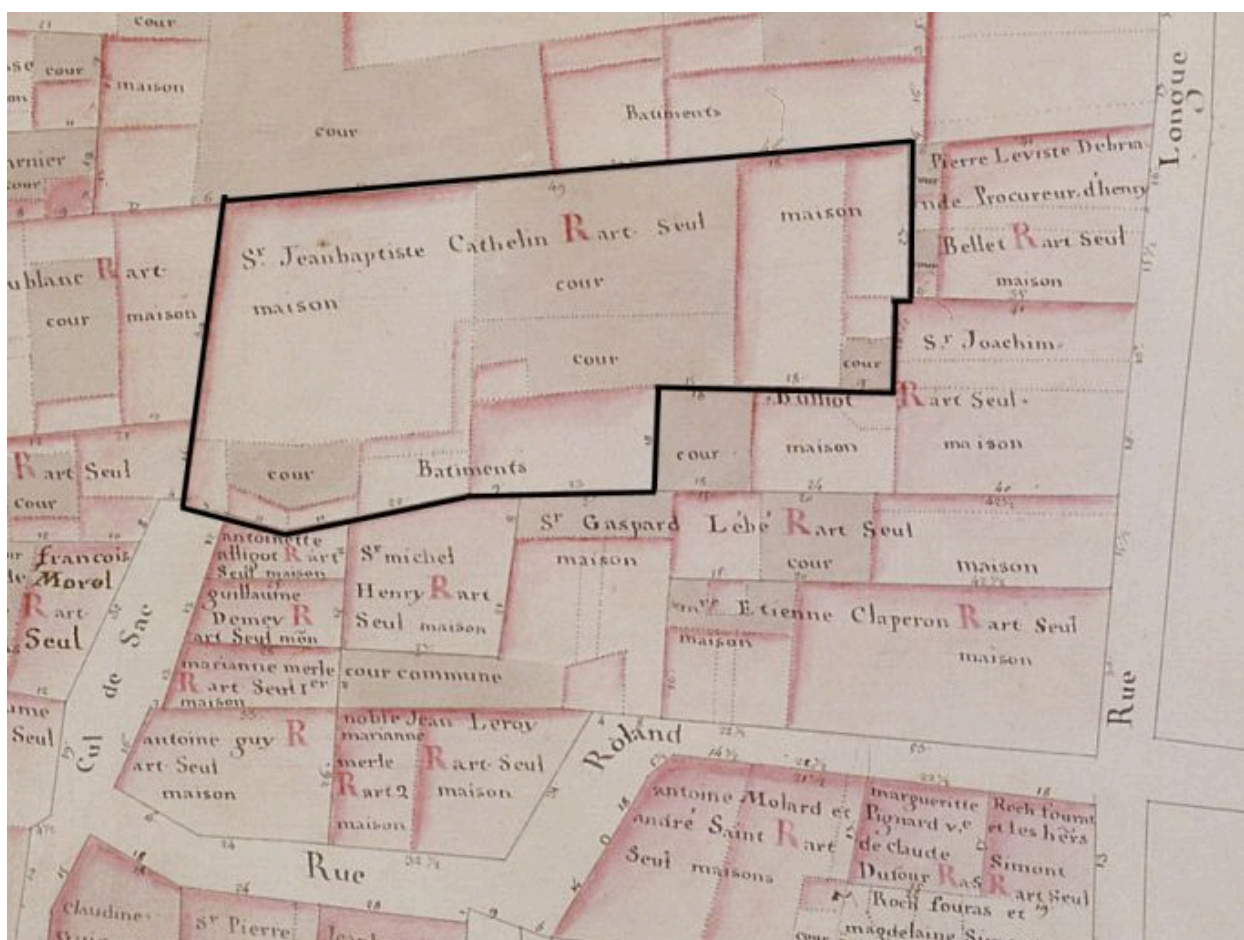 cour
cour
maison
cour
Batiments
Longue
cour
Pierre Leviste Debria
nde Procureur d'henry
Bellet R art Seul
maison
Sr. Jeanbaptiste Cathelin R art Seul
maison
cour
cour
maison
cour
ublanc R art
cour
maison
Sr. Joachim
Bulliot
R art Seul
maison
maison
cour
R art Seul
cour
cour
Batiments
Sr Gaspard Lébé R art Seul
maison
cour
maison
francois
Morol
R art
Seul
antoinette
alligot R art
Seul maison
Sr michel
Henry R art
Seul maison
guillaume
Demey R
art Seul mon
Etienne Claperon R art Seul
maison
maison
marianne merle
R art Seul 1er
maison
cour commune
Cul de Sac
Seul
antoine guy R
art Seul
maison
noble Jean Leroy
R art Seul
maison
marianne
merle
R art 2
maison
Rue Roland
Rue
antoine Molard et
andré Saint R art
Seul maisons
margueritte
Pignard v.e
de claude
Dufour R a5
Roch fourat
et les hers
Simont
R art Seul
Roch fouras et
magdelaine
claudine
Sr Pierre